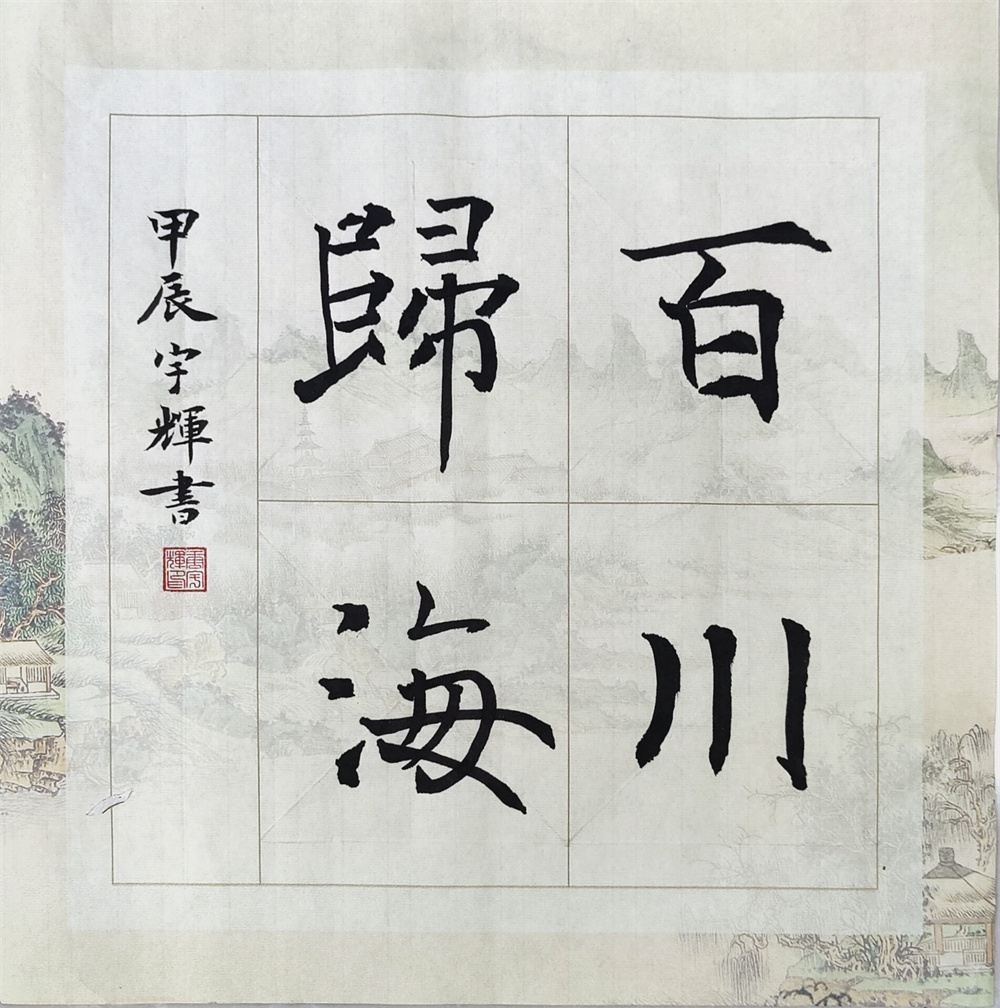 百川
歸海
甲辰宇輝書